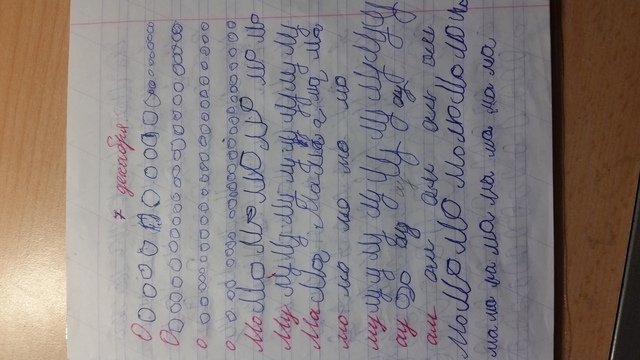 7 декабря.
О О О О О О О О О О О О
О О О О О О О О О О О О О О О О О О
о о о о о о о о о о о о о о о о о о о о о о
о о о о о о о о о о о о о о о о о о о о о о
Мо Мо Мо Мо Мо Мо Мо
Му Му Му Му Му Му Му Му
Ма Ма Ма Ма Ма Ма
мо мо мо мо мо мо
му му му му Му Му Му Му
ау ау ау ау
ам ам ам ам ам ам
Мо Мо Мо Мо Мо Мо Мо
ма ма ма ма ма ма ма ма ма